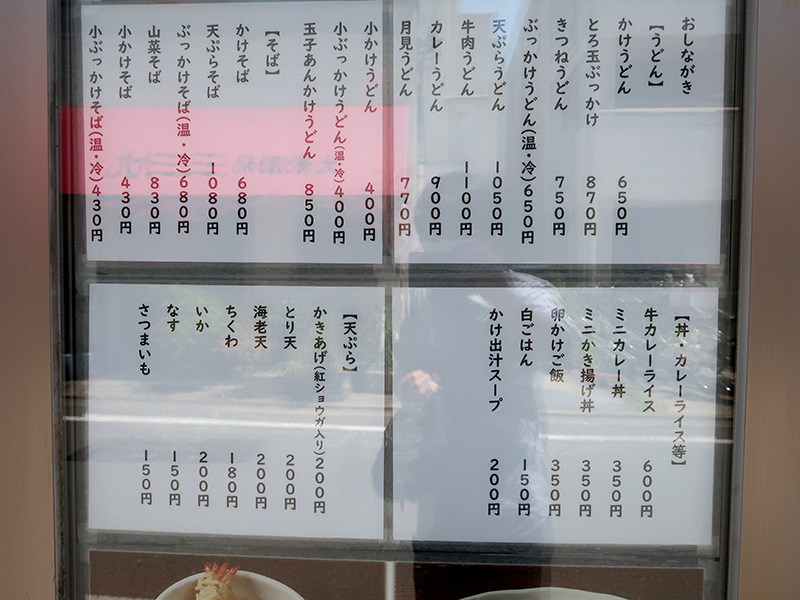 おしながき
【うどん】
かけうどん 650円
とろ玉ぶっかけ 870円
きつねうどん 750円
ぶっかけうどん(温・冷)650円
天ぷらうどん 1050円
牛肉うどん 1100円
カレーうどん 900円
月見うどん 770円
小かけうどん 400円
小ぶっかけうどん(温・冷)400円
玉子あんかけうどん 850円
【そば】
かけそば 680円
天ぷらそば 1080円
ぶっかけそば(温・冷)680円
山菜そば 830円
小かけそば 430円
小ぶっかけそば(温・冷)430円
【丼・カレーライス等】
牛カレーライス 600円
ミニカレー丼 350円
ミニかき揚げ丼 350円
卵かけご飯 350円
白ごはん 150円
かけ出汁スープ 200円
【天ぷら】
かきあげ(紅ショウガ入り)200円
とり天 200円
海老天 200円
ちくわ 180円
いか 200円
なす 150円
さつまいも 150円